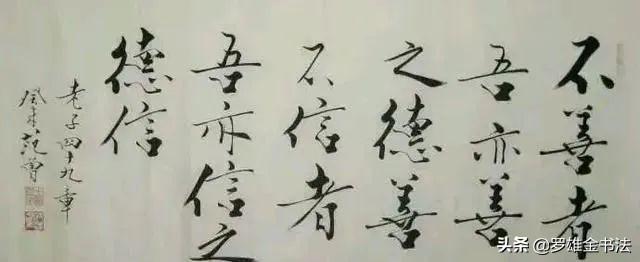 不善者
吾亦善
之德善
不信者
吾亦信之
德信
老子四十九章
癸未范曾
头条@罗雄金书法